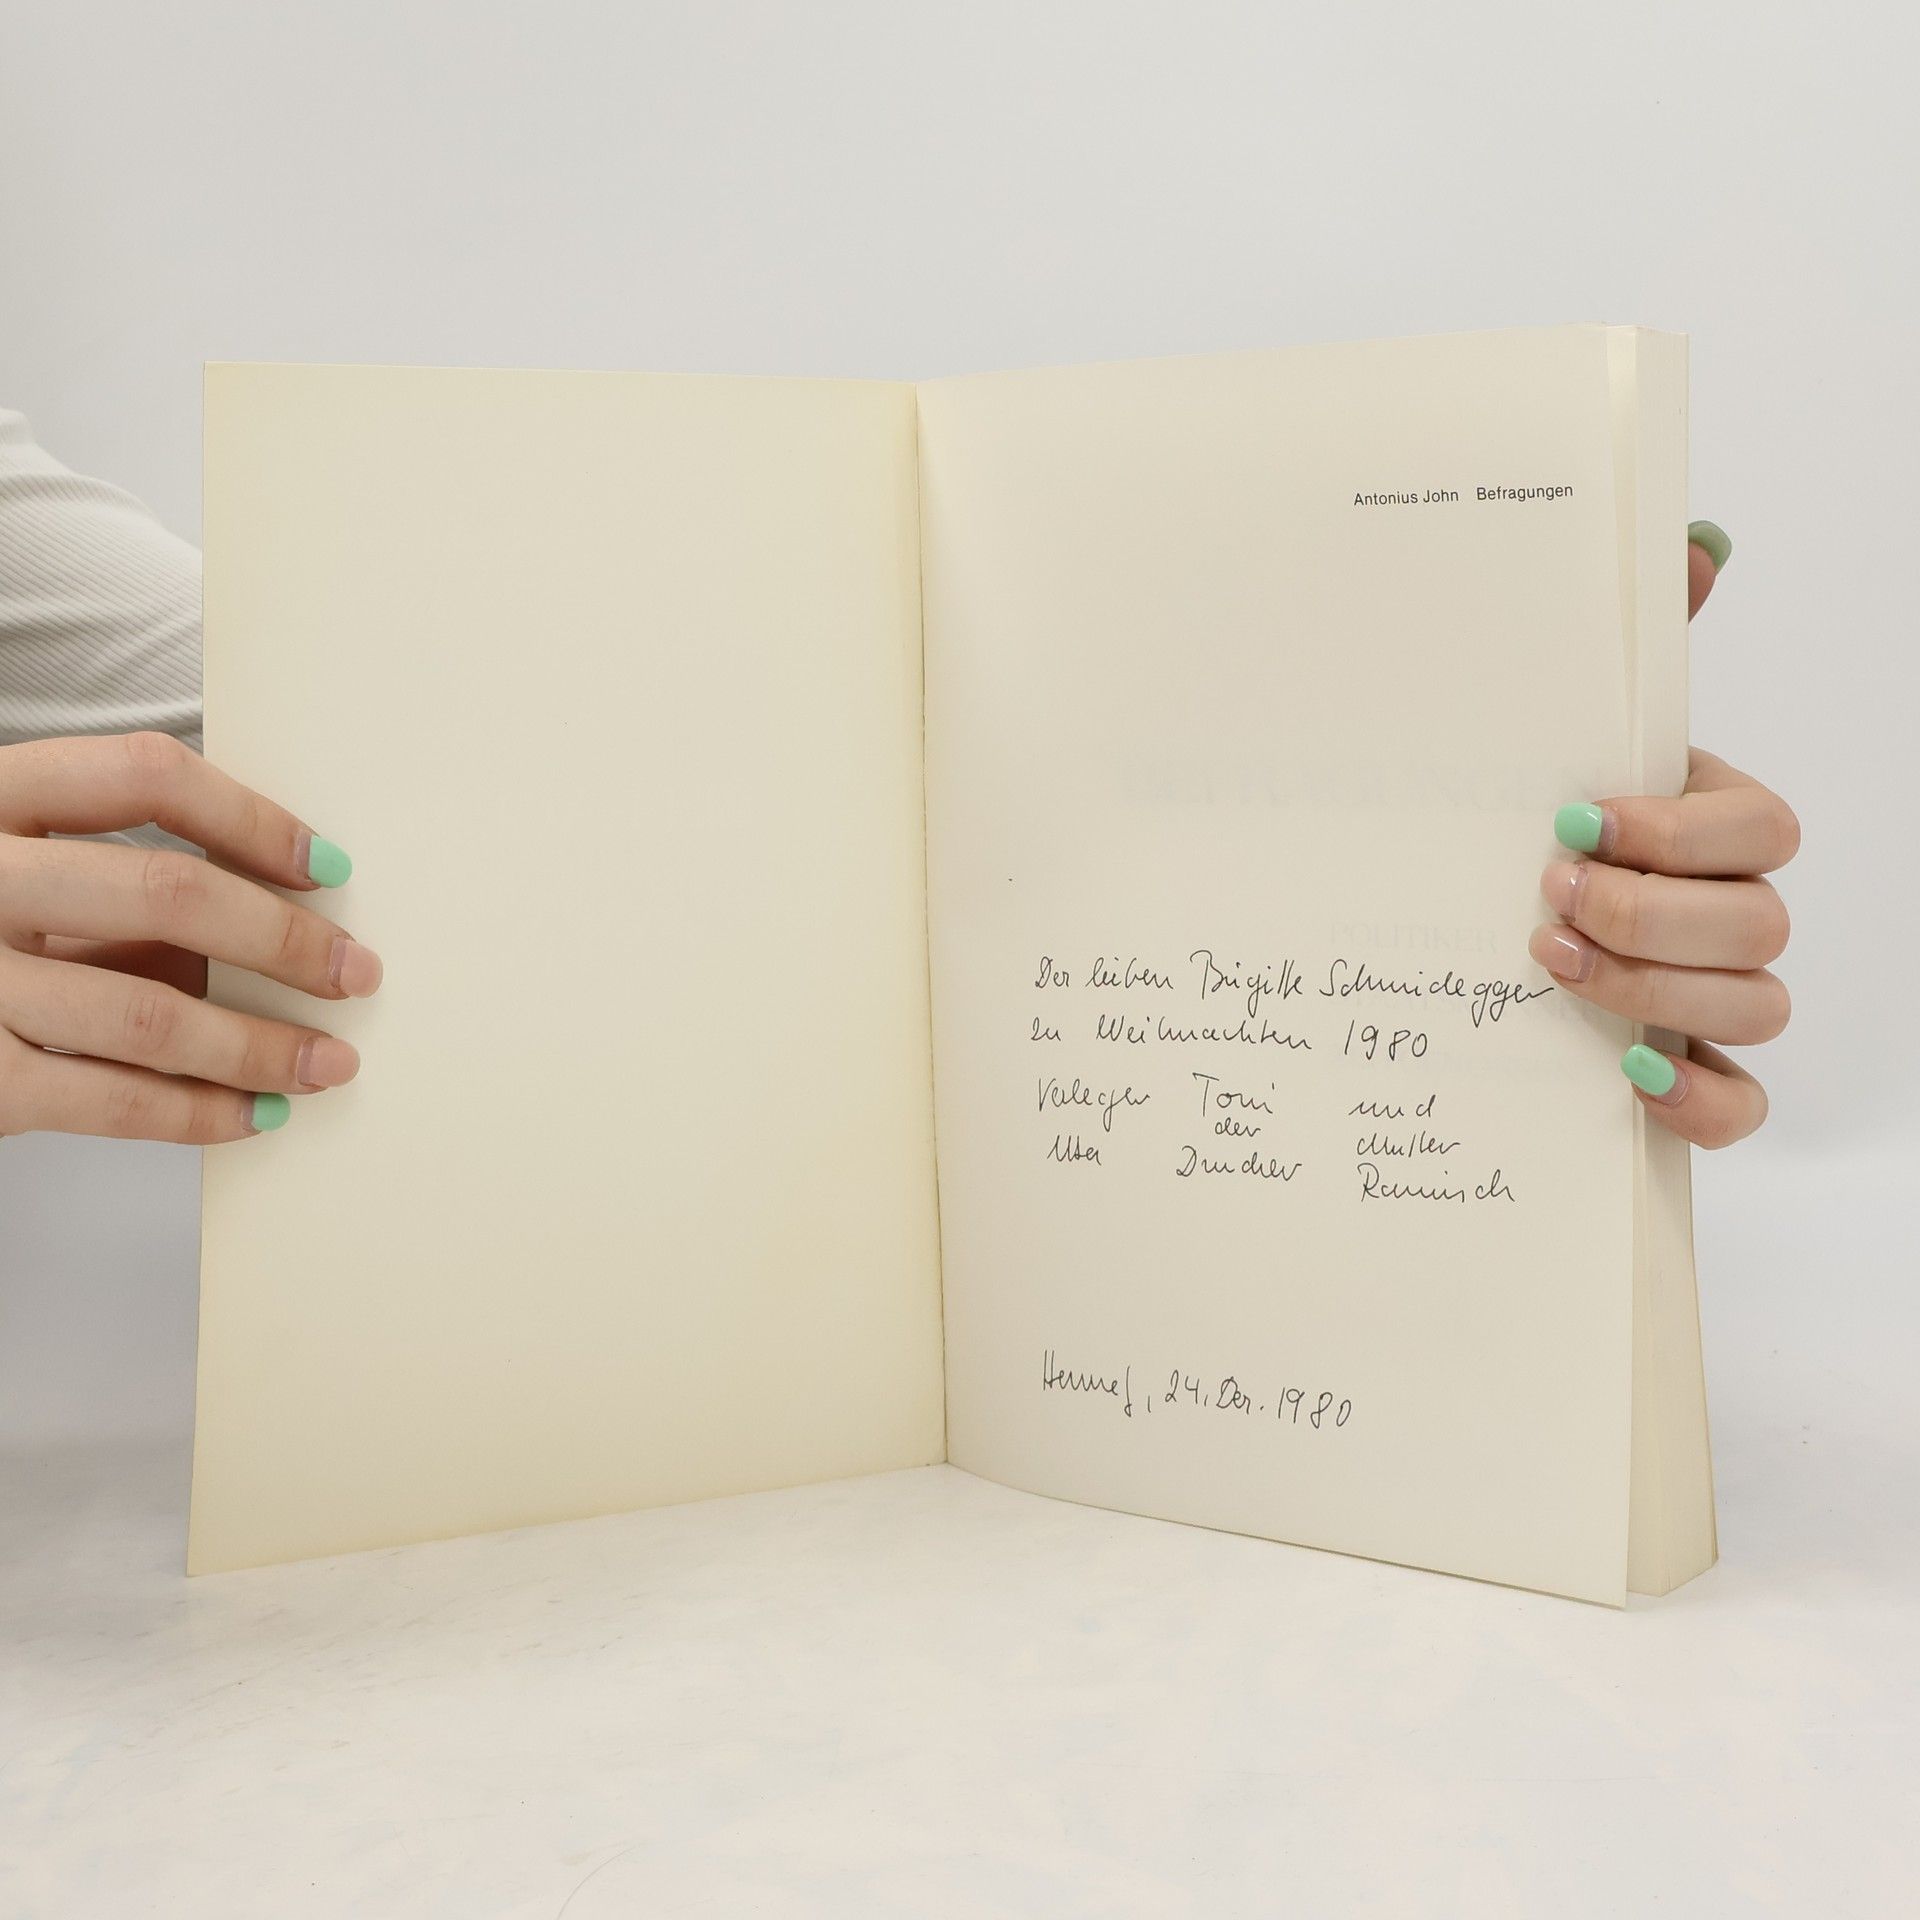 Antonius John Befragungen
POLITIKER
Der lieben Brigitte Schmidegger
zu Weihnachten 1980
Verleger Toni und
der Mutter
Uta Drucker Ramisch
Hennef, 24. Dez. 1980